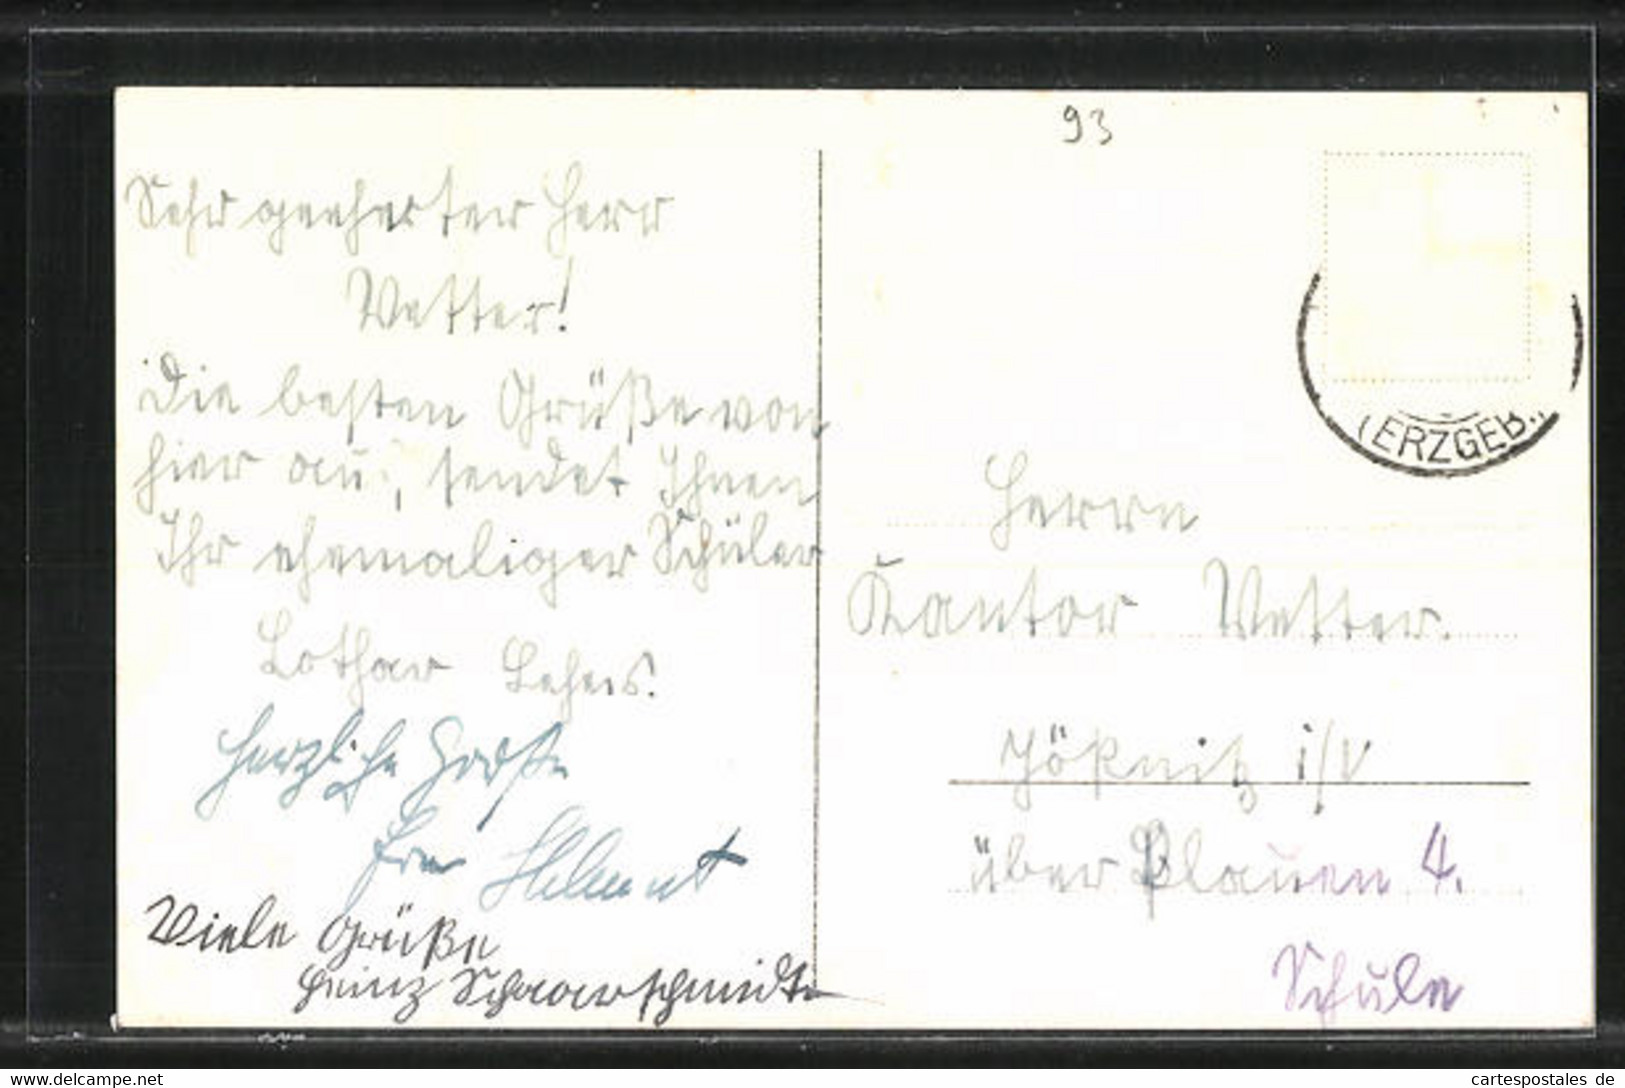 93
Sehr geehrter Herr
Vetter!
Die besten Grüße von
hier aus, sendet Ihnen
Ihr ehemaliger Schüler
Lothar
Herzliche Grüße
Helmut
Viele Grüße
Heinz Schwarzschmidt
(ERZGEB.)
Herrn
Kantor Vetter.
Jößnitz i/V
über Plauen 4.
Schule
cartespostales de
www.delcampe.net